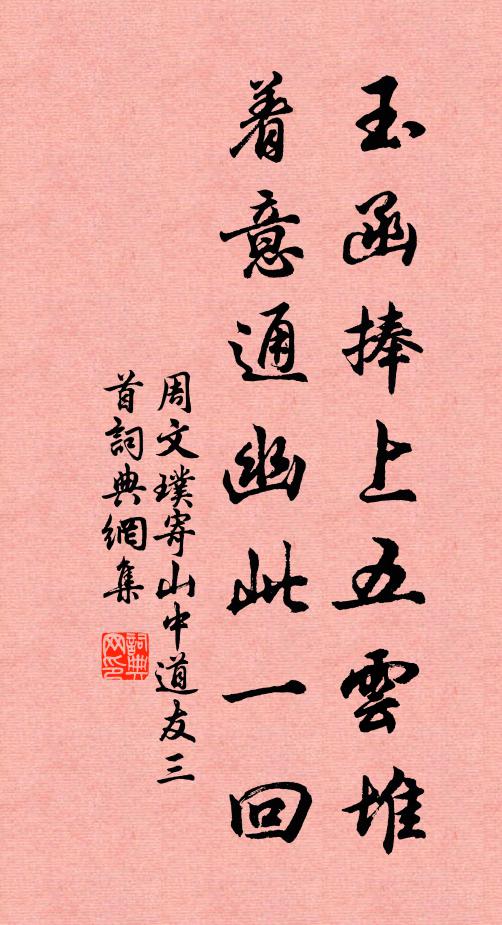 玉函捧上五雲堆
着意通幽此一回
周文璞寄山中道友三
首詞典網集
詞典網印